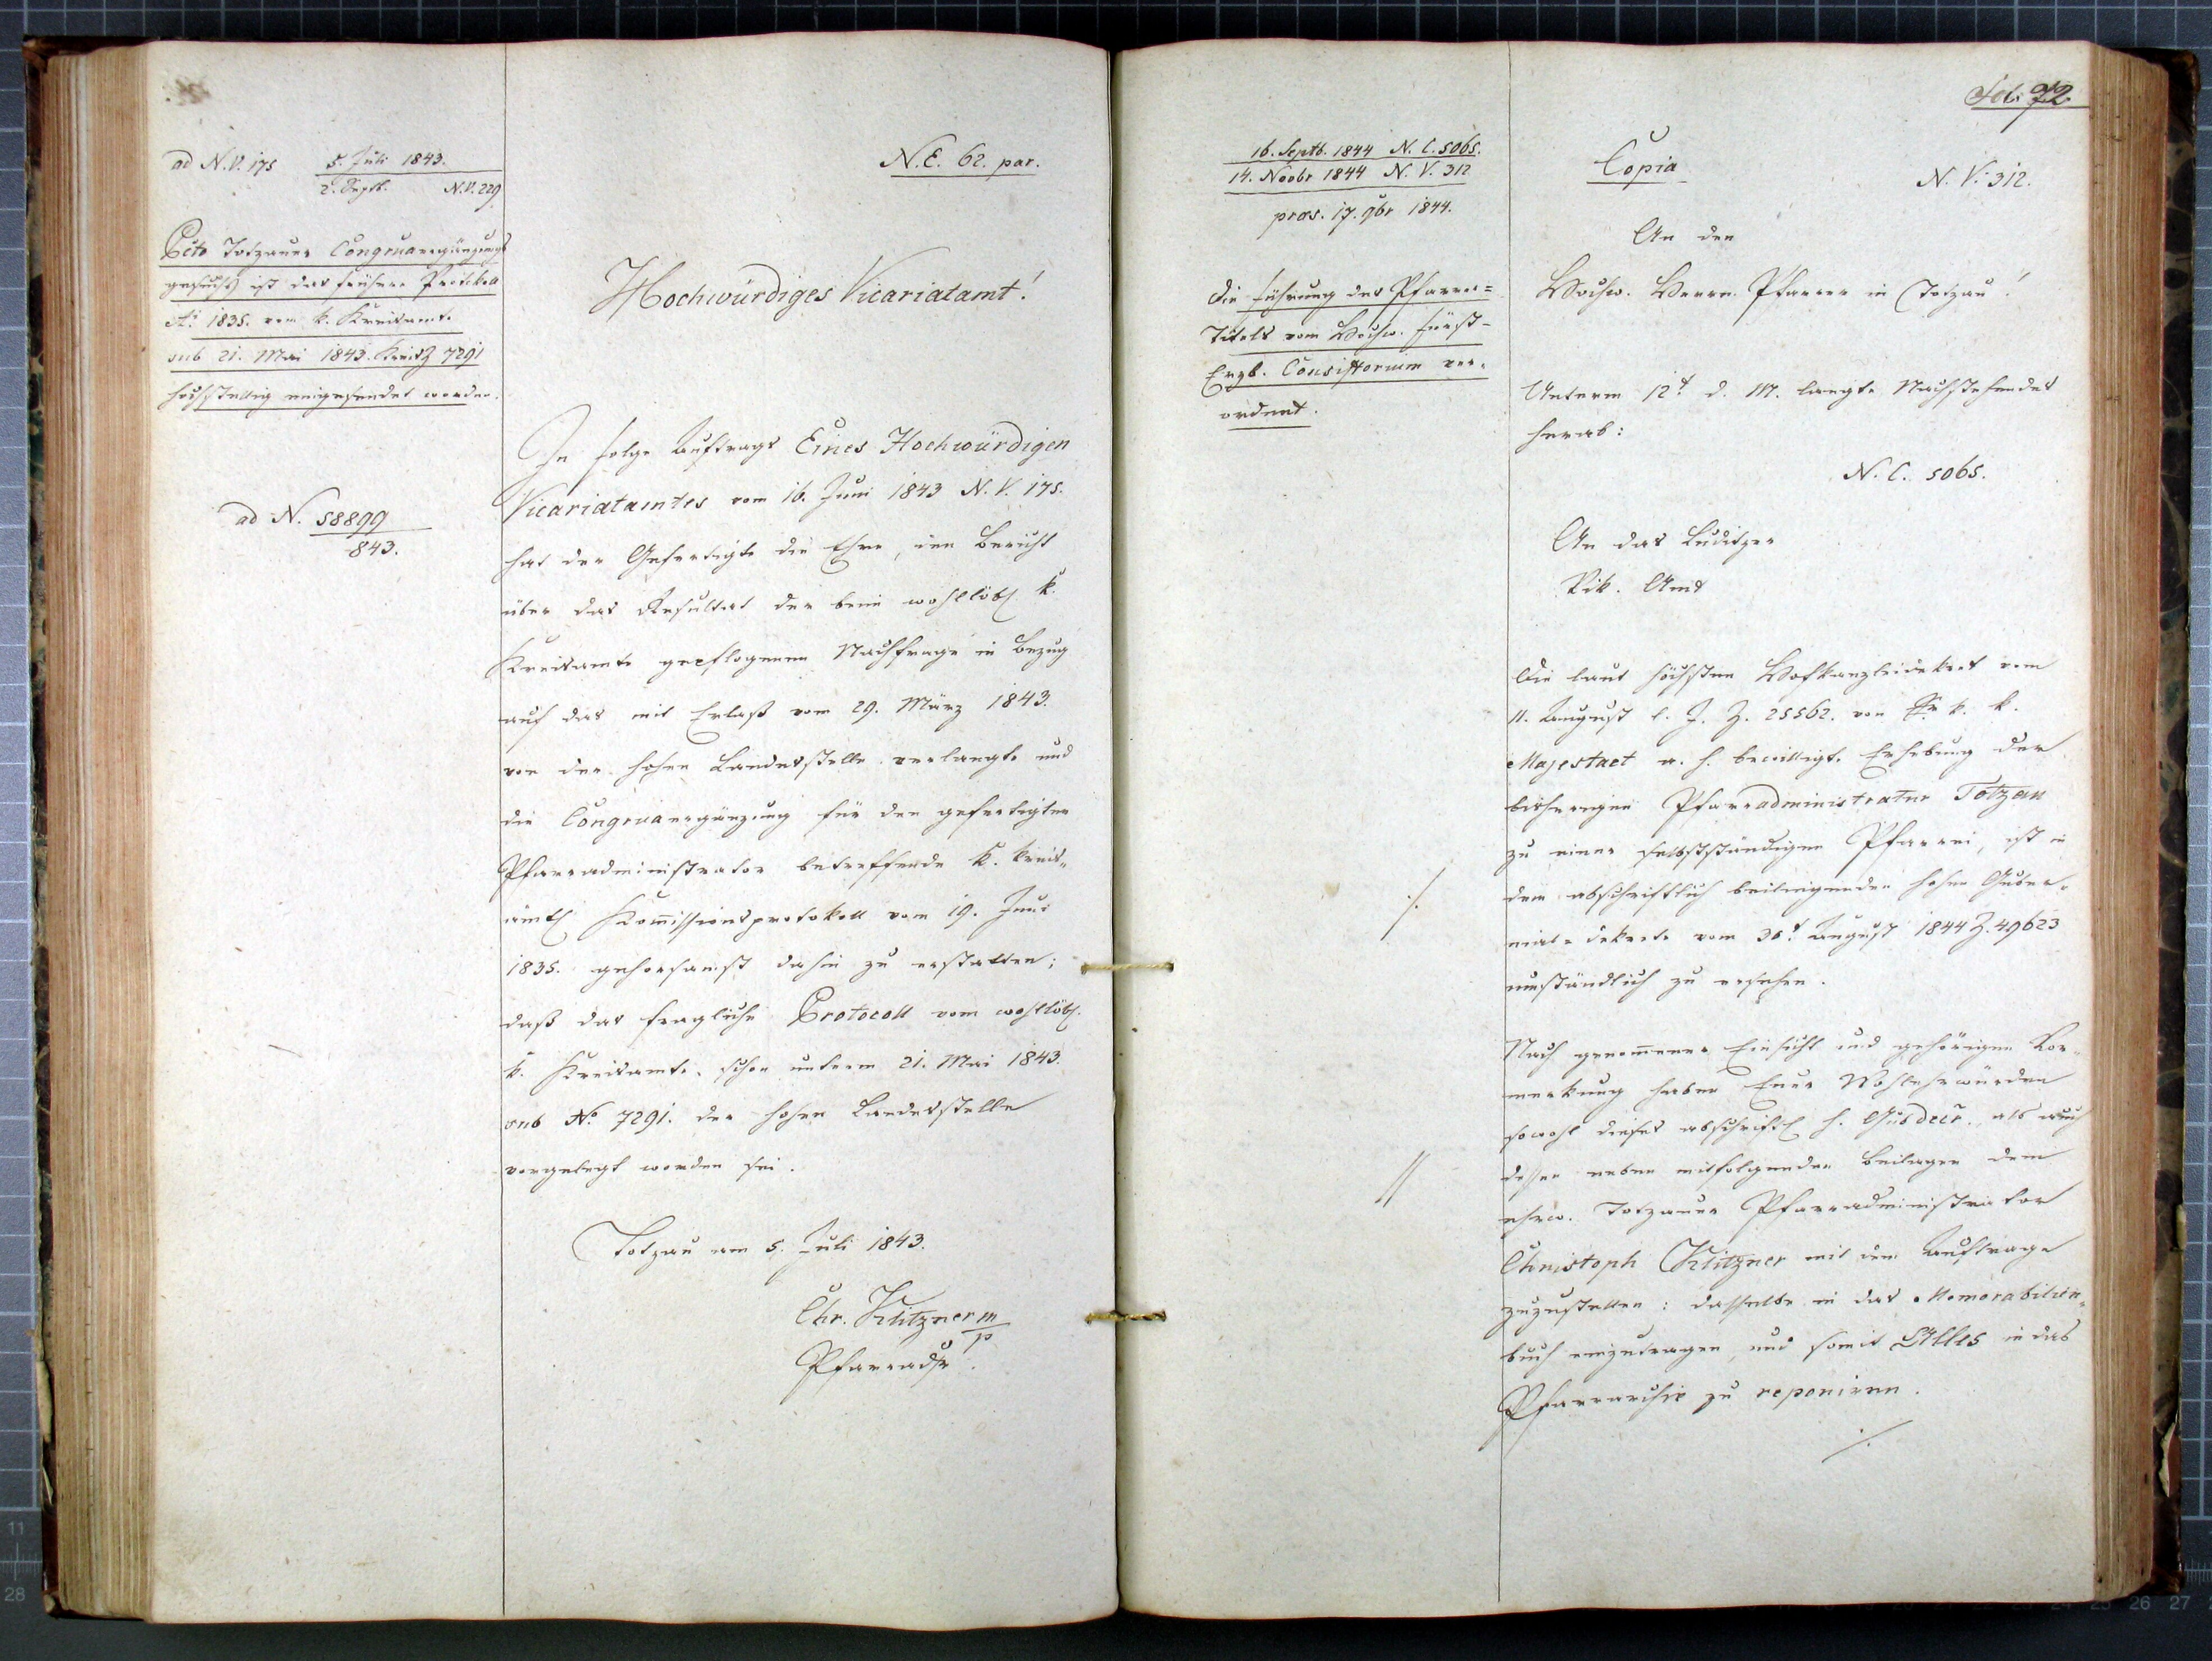 ad N.V. 175 5. Juli 1843.
2. Septb. N.V. 229
Pcto Totzauer Congruaergänzungs
gesuchs ist das frühere Protokoll
Ao 1835. vom k. Kreisamte
sub 21. Mai 1843. Kreisz 7291
höchstellig eingesendet worden.
ad N. 58899
843.
N.E. 62. par.
Hochwürdiges Vicariatamt!
In folge Auftrags Eines Hochwürdigen
Vicariatamtes vom 16. Juni 1843 N.V. 175.
hat der Gefertigte die Ehre, den Bericht
über das Resultat der beim wohllöbl. k.
Kreisamte gepflogenen Nachfrage in Bezug
auf das mit Erlaß vom 29. März 1843.
von der hohen Landesstelle verlangte und
die Congruaergänzung für den gefertigten
Pfarradministrator betreffende k. kreis-
ämtl. Kom̄issionsprotokoll vom 19. Juni
1835. gehorsamst dahin zu erstatten;
daß das fragliche Protocoll vom wohllöbl.
k. Kreisamte schon unterm 21. Mai 1843.
sub No. 7291. der hohen Landesstelle
vorgelegt worden sei.
Totzau am 5. Juli 1843.
Chr. Klitzner m/p
Pfarradstr.
Fol. 72
16. Septb. 1844 N. C. 5065.
14. Novbr 1844 N. V. 312
präs. 17. 9br 1844.
Die Führung des Pfarrer-
Titels vom Hochw. Fürst-
Erzb. Consistorium ver-
ordnet.
Copia
N. V. 312.
An den
Hochw. Herrn Pfarrer in Totzau!
Unterm 12t d. M. langte Nachstehendes
herab:
N. C. 5065.
An das Luditzer
Vik. Amt
Die laut höchsten Hofkanzleidekret vom
11. August l. J. Z. 25562. von Sr. k. k.
Majestaet a. h. bewilligte Erhebung der
bisherigen Pfarradministratur Totzau
zu einer selbstständigen Pfarrei, ist in
./. dem abschriftlich beiliegenden hohen Guber-
nial-Dekrete vom 30t August 1844 Z. 49623
umständlich zu ersehen.
Nach genom̄ener Einsicht und gehörigen Vor-
merkung haben Euer Wohlehrwürden
sowohl dieses abschriftl. h. Gubdecr. als auch
// dessen neben mitfolgenden Beilagen dem
ehrw. Totzauer Pfarradministrator
Christoph Klitzner mit dem Auftrage
zuzustellen: dasselbe in das Memorabilien-
buch einzutragen, und somit Alles in das
Pfarrarchiv zu reponiren.
./.